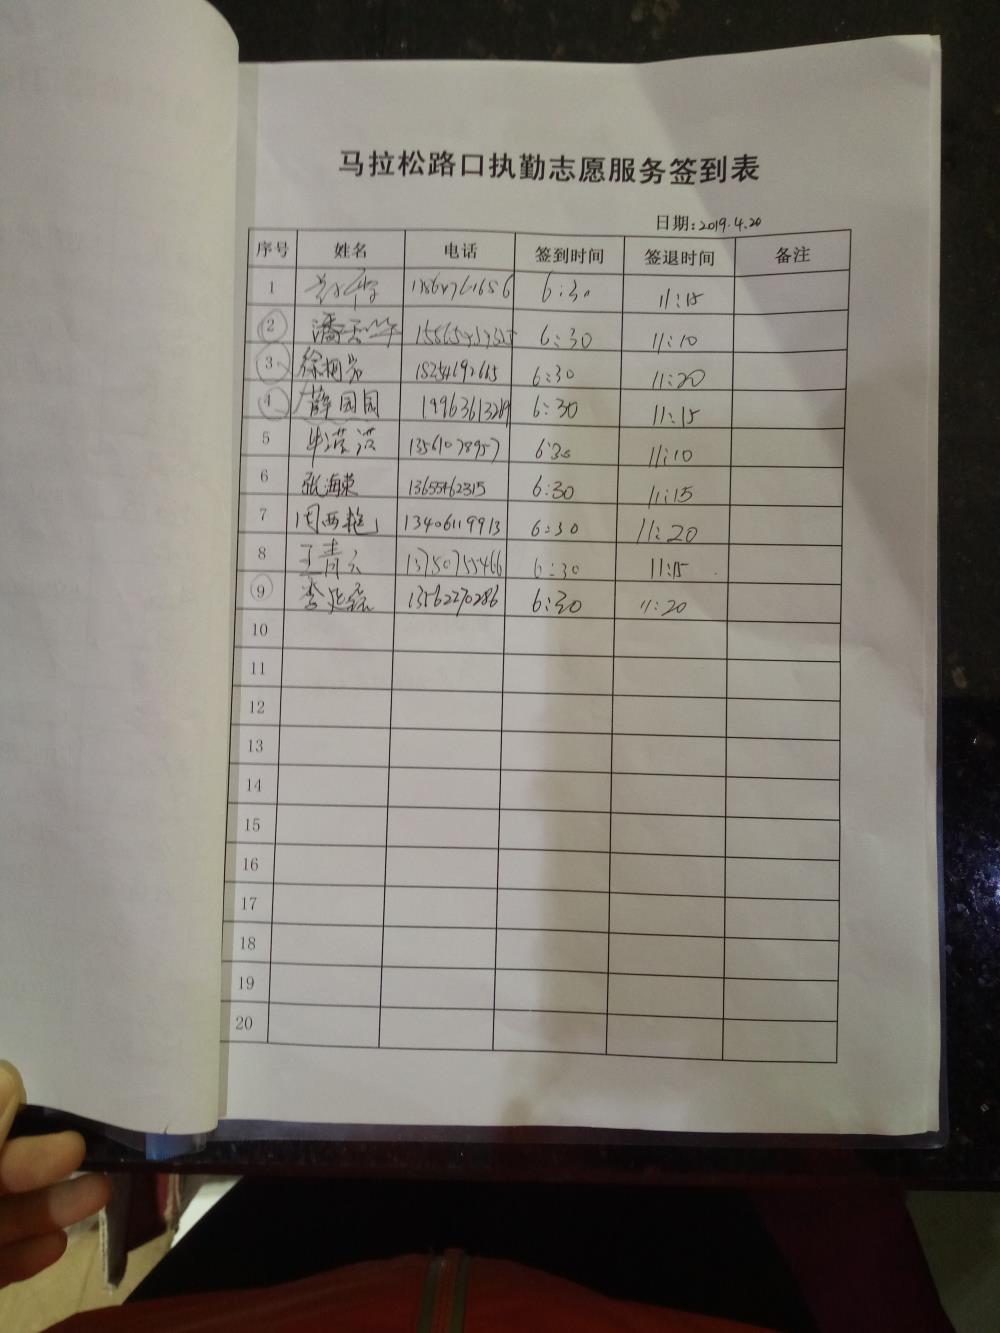 马拉松路口执勤志愿服务签到表
日期:2019.4.20
序号 姓名 电话 签到时间 签退时间 备注
1 6:30 11:15
2 6:30 11:10
3 6:30 11:20
4 薛园园 6:30 11:15
5 13561078957 6:30 11:10
6 张海荣 13655462315 6:30 11:15
7 13406119913 6:30 11:20
8 王青云 13750755466 6:30 11:15
9 13562270286 6:30 11:20
10
11
12
13
14
15
16
17
18
19
20